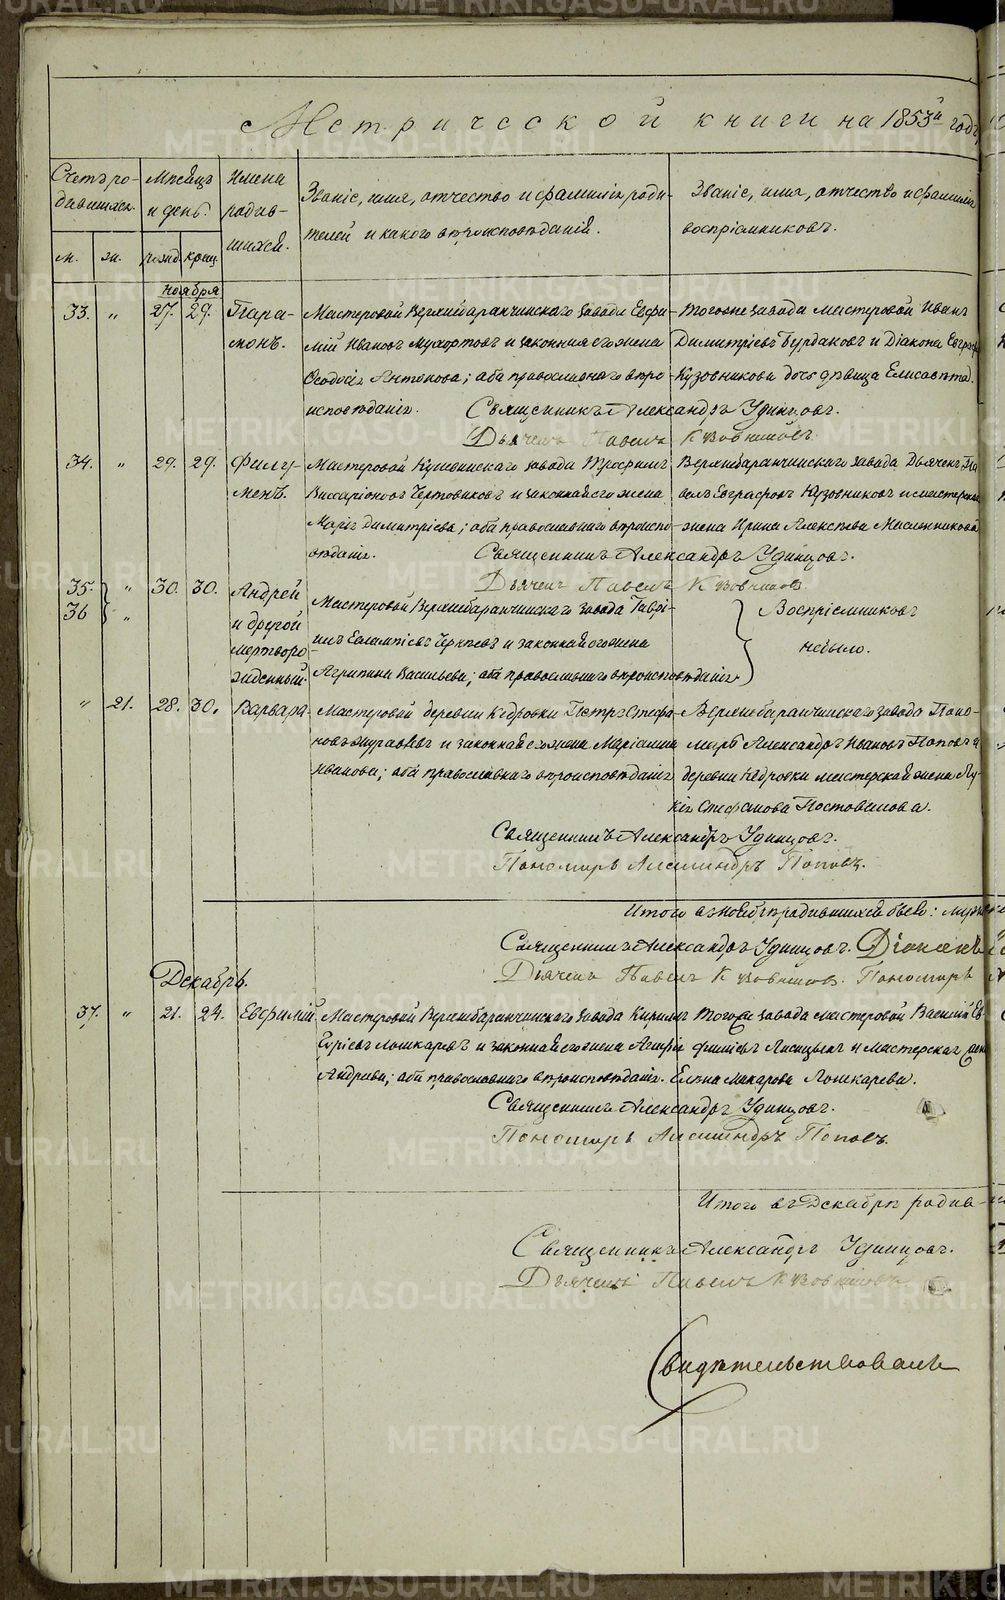 Метрической книги на 1853й годъ
Счетъ родившихся. Мѣсяцъ и день. Имена родившихся. Званіе, имя, отчество и фамилія родителей и какого вѣроисповѣданія. Званіе, имя, отчество и фамилія воспріемниковъ.
м. ж. рожд. крещ.
Ноября
33. „ 27. 29. Пара- Мастеровой Верхнебаранчинскаго завода Евфи- Тогоже завода мастеровой Иванъ
монъ. мій Ивановъ и законная его жена Димитріевъ Бурдаковъ и Діакона
Ѳеодосія Антонова; оба православнаго вѣро- Кузовникова дочь дѣвица Елисавета.
исповѣданія. Священникъ Александръ Удинцовъ.
Дьячекъ Павелъ Кузовниковъ
34. „ 29. 29. Филу- Мастеровой Кушвинскаго завода Трофимъ Верхнебаранчинскаго завода Дьячекъ Па-
менъ. Виссаріоновъ и законная его жена велъ Евграфовъ Кузовниковъ и мастерская
Марія Димитріева; оба православнаго вѣроиспо- жена Ирина Алексѣева Масленникова
вѣданія. Священникъ Александръ Удинцовъ.
35. „ 30. 30. Андрей Дьячекъ Павелъ Кузовниковъ
36 „ и другой Мастеровой Верхнебаранчинскаго завода Гаврі- Воспріемниковъ
мертворо- илъ Евлампіевъ и законная его жена небыло.
жденный. Агрипина Васильева; оба православнаго вѣроисповѣданія
„ 21. 28. 30. Варвара. Мастеровой деревни Кедровки Петръ Стефа- Верхнебаранчинскаго завода Поно-
новъ и законная его жена Маріамна марь Александръ Ивановъ Поповъ и
Иванова; оба православнаго вѣроисповѣданія деревни Кедровки мастерская жена Лу-
кія Стефанова Постовалова.
Священникъ Александръ Удинцовъ.
Пономарь Александръ Поповъ.
Итого въ Ноябрѣ родившихся было: муже
Священникъ Александръ Удинцовъ. Діаконъ
Дьячекъ Павелъ Кузовниковъ. Пономарь
Декабрь.
37. „ 21. 24. Евфимій Мастеровой Верхнебаранчинскаго завода Кирилъ Тогоже завода мастеровой Василій
Гуріевъ Лошкаревъ и законная его жена Агафія Лисицынъ и мастерская жена
Андреева; оба православнаго вѣроисповѣданія. Елена Макарова Лошкарева.
Священникъ Александръ Удинцовъ.
Пономарь Александръ Поповъ.
Итого въ Декабрѣ родив-
Священникъ Александръ Удинцовъ.
Дьячекъ Павелъ Кузовниковъ
Свидѣтельствовалъ
METRIKI.GASO-URAL.RU